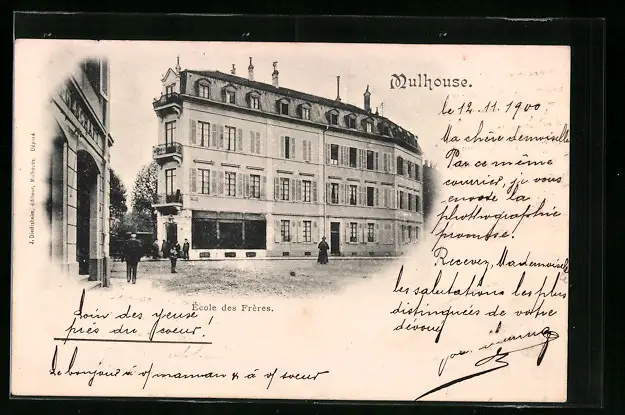 Mulhouse.
le 12.11.1900
Ma chère demoiselle
Par ce même
courrier, je vous
envoie la
photographie
promise.
Recevez, Mademoiselle
les salutations les plus
distinguées de votre
dévoué
École des Frères.
Loin des yeuse
près du coeur!
Le bonjour à v/ maman & à v/ soeur
J. Dreifishelm, éditeur, Mulhouse. Déposé
PHARMACIE